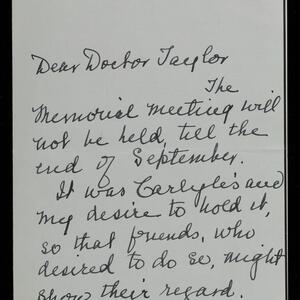 Dear Doctor Taylor
The
Memorial meeting will
not be held, till the
end of September.
It was Carlyle's and
my desire to hold it,
so that friends, who
desired to do so, might
show their regard.